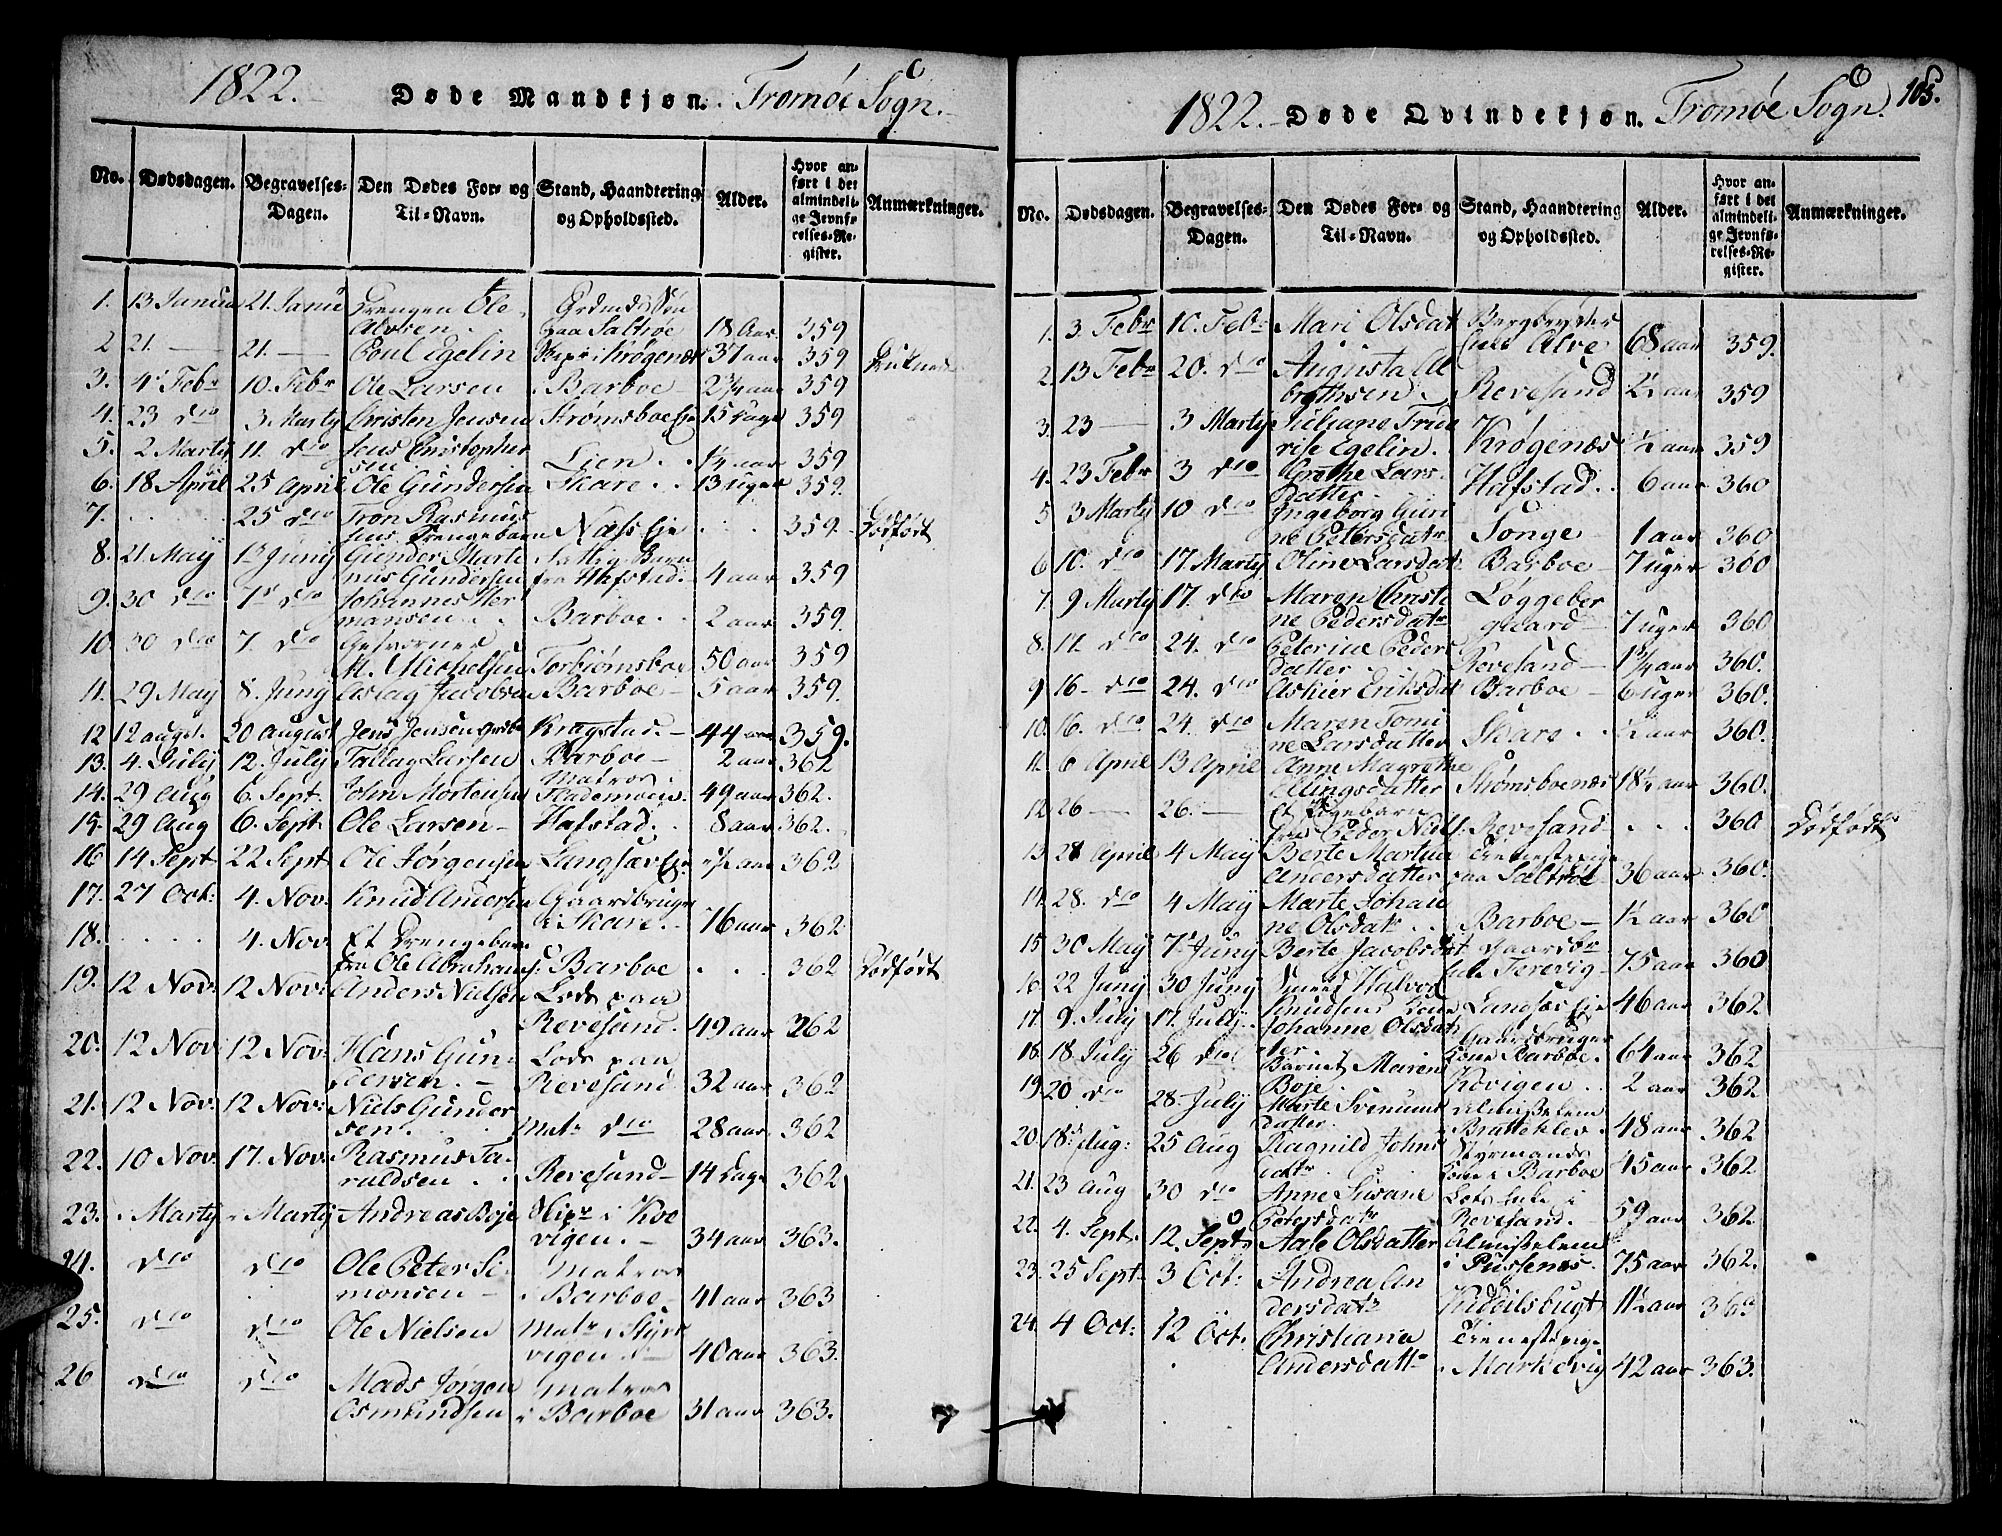 1822. Døde Mandkjøn. Tromøe Sogn.
No. Dødsdagen. Begravelses-Dagen. Den Dødes For- og Til-Navn. Stand, Haandtering og Opholdssted. Alder. Hvor anført i det almindelige Jevnførelses-Register. Anmærkninger.
1. 13 Januar 21. Janu Drengen Ole Alvsen. paa Saltroe 18 Aar 359
2 21. — 21. — Poul Egelin Krøgenæs 37 aar 359
3. 4 Febr 10. Febr Ole Larsen Barboe 2 3/4 aar 359
4. 23 dto 3. Martij Cristen Jensen Strømsboe Eje 15 Dage 359
5. 2 Martij 11. dto Jens Christophersen Lien. 1/4 aar 359
6. 18 April 25 April Ole Gundersen Skare. 13 uger 359.
7. . . 25 dto Fron Rasmus Drengebarn Næss Eje . . 359. Dødfødt
8. 21 Maij 1 Junij Gunder Martinus Gundersen fra Hafstad. 4 aar 359
9. 30 dto 7 dto Johannes Hermansen. Barboe. 2 aar 359.
10. 30 dto 7. dto M. Michelsen Torbiørnsboe 50 aar 359
11. 29 May 8. Juny Aslag Jacobsen Barboe — 5 aar 359.
12 12 augst. 20 August Jens Jensen Kragstad. — 44 aar 359.
13. 4. July 12. July Tallag Larsen Barboe — 2 aar 362
14. 29 Aug 6. Sept. John Mortensen Matros i 49 aar 362.
15. 29 Aug 6. Sept. Ole Larsen — Hafstad. 8 aar 362.
16 14 Sept 22 Sept Ole Jørgensen Langsæv Eje 1/2 aar 362
17. 27 Oct: 4. Nov. Knud Andersen Gaardbruger i Skare. 76 aar 362
18. . . . 4. Nov. Et Drengebarn fra Ole Abrahams: Barboe . . . 362 Dødfødt
19. 12 Nov: 12 Nov: Anders Nielsen Lods paa Revesund. 49 aar 362
20. 12 Nov: 12 Nov: Hans Gundersen. — Lods paa Revesund 32 aar 362
21. 12 Nov: 12 Nov: Niels Gundersen. Matr dto 28 aar 362
22. 10 Nov. 17. Nov. Rasmus Taraldsen. Revesund — 14 Dage 362
23. Martij Martij Andreas Boje i Kovigen. — 34 aar 363.
24. dto dto Ole Peter Simonsen — Matros i Barboe — 41 aar 363
25. dto dto Ole Nielsen Matr i Styrvigen. 40 aar 363.
26 dto dto Mads Jørgen Osmundsen Matros i Barboe 31 aar 363.
1822. Døde Qvindekjøn. Tromøe Sogn. 105.
No. Dødsdagen. Begravelses-Dagen. Den Dødes For- og Til-Navn. Stand, Haandtering og Opholdssted. Alder. Hvor anført i det almindelige Jevnførelses-Register. Anmærkninger.
1. 3 Febr 10. Febr Mari Olsdat Alve 68 aar 359.
2. 13 Febr 20. dto Augusta Albrethsen. Revesand 2 1/2 aar 359
3. 23 — 3 Martij Juliane Friderise Egelin. Krøgenæs 1/2 aar 359
4. 23 Febr 3 dto Grethe Larsdatter. Hafstad. 6 aar 360
5 3 Marty 10 dto Ingeborg Gunine Petersdatr Songe 1 aar 360
6 10. dto 17. Martij Oline Larsdat Barboe — 7 uger 360
7. 9 Marty 17. dto Maren Christine Pedersdatr Løggebergaard 7 uger 360
8. 11. dto 24. dto Peterine Pedersdatter Revesand — 1 3/4 aar 360.
9 16 — dto 24. dto Askier Eriksdat Barboe — 6 uger 360.
10. 16. dto 24. dto Maren Tomine Larsdatter Skare . . 1/2 aar 360.
11. 6 April 13 April Anne Magrethe Ellingsdatter Strømsboenæs 18 1/2 aar 360.
12. 26 — 26. — Et Pigebarn fra Peder Niels: Revesand . . . 360 Dødfødt
13. 28 April 4 May Berte Martina Andersdatter Tienestepige paa Saltrøe 36 aar 360.
14. 28. dto 4 Maij Marte Johanne Olsdatr. Barboe — 1 1/2 aar 360
15 30 May 7 Juny Berte Jacobsdat Gaardbr Færevig — 75 aar 360
16. 22 Juny 30 Juny Halvor Knudsens Kone Langsæv Eje 46 aar 362
17. 9. July 17. July Johanne Olsdatter Gaardbruger Kone Barboe. 64 aar 362
18. 18 July 26 dto Barnet Maren Boje Kovigen . . 2 aar 362
19 20 dto 28 July Marte Svenunsdatter Almisselem Bratteklev. 48 aar 362
20. 18 Aug: 25 Aug Ragnild Johnsdatr Styrmands Kone i Barboe 45 aar 362
21. 23 Aug 30 dto Anne Susane Petersdatr Revesand. — 59 aar 362
22. 4. Sept. 12. Sept Aase Olsdatter Almisselem i Pussenes. 75 aar 362.
23. 25 Sept. 3 Oct: Andrea Andersdatr Kiddilsbugt 11 1/2 aar 362
24. 4 Oct: 12 Oct. Christiana Andersdattr Tienestepige i Markevig 42 aar 363.